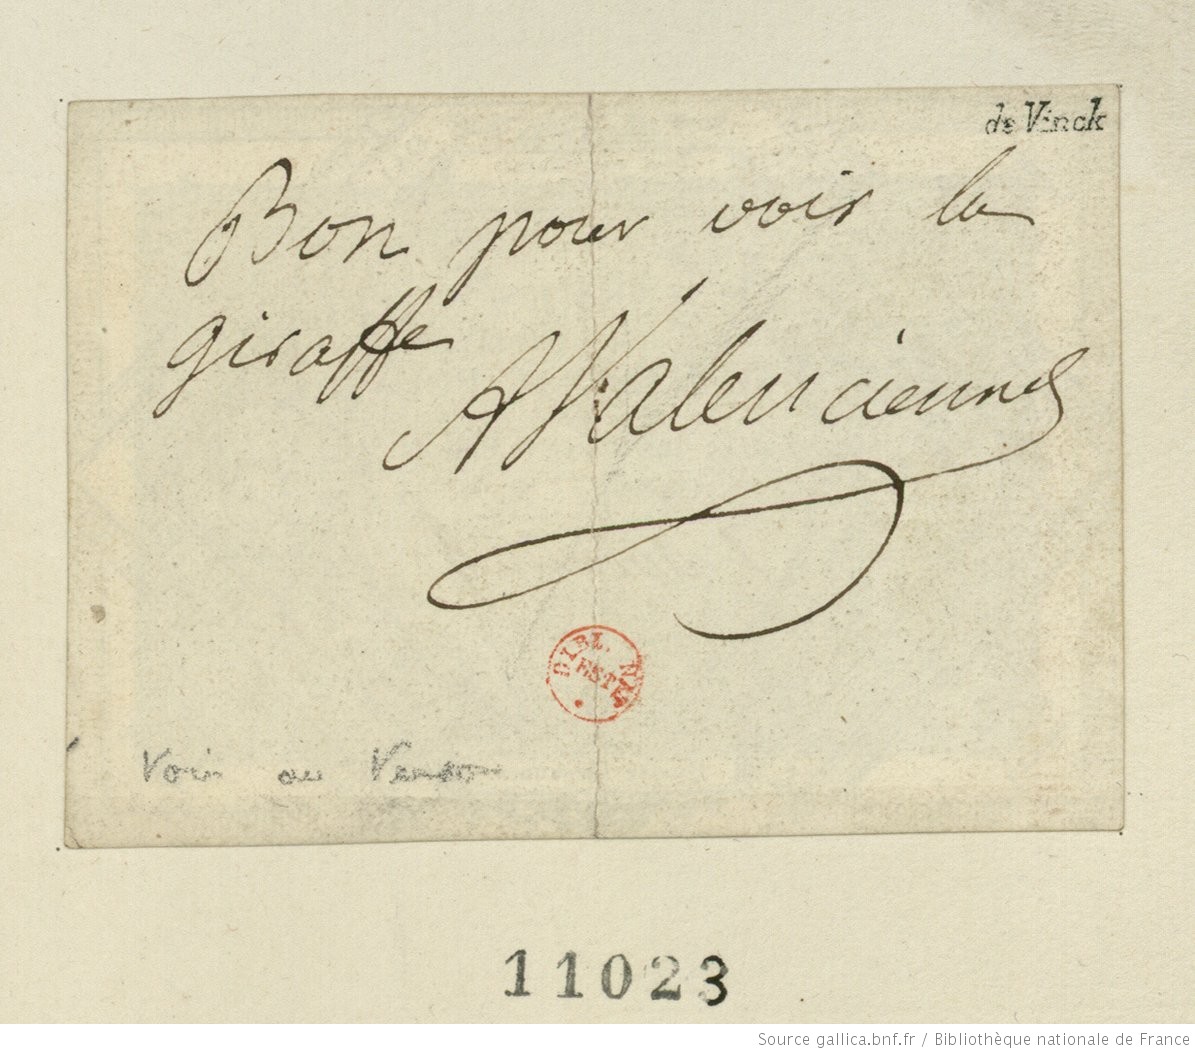 de Vinck
Bon pour voir la
giraffe
A Valenciennes
BIBL. NAT.
EST.
Voir au Verso
11023
Source gallica.bnf.fr / Bibliothèque nationale de France